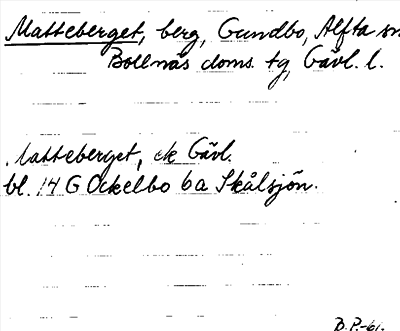 Matteberget, berg, Gundbo, Alfta sn
Bollnäs doms. tg, Gävl. l.
Matteberget, ek Gävl.
bl. 14 G Ockelbo 6a Skålsjön.
B.P.-61.